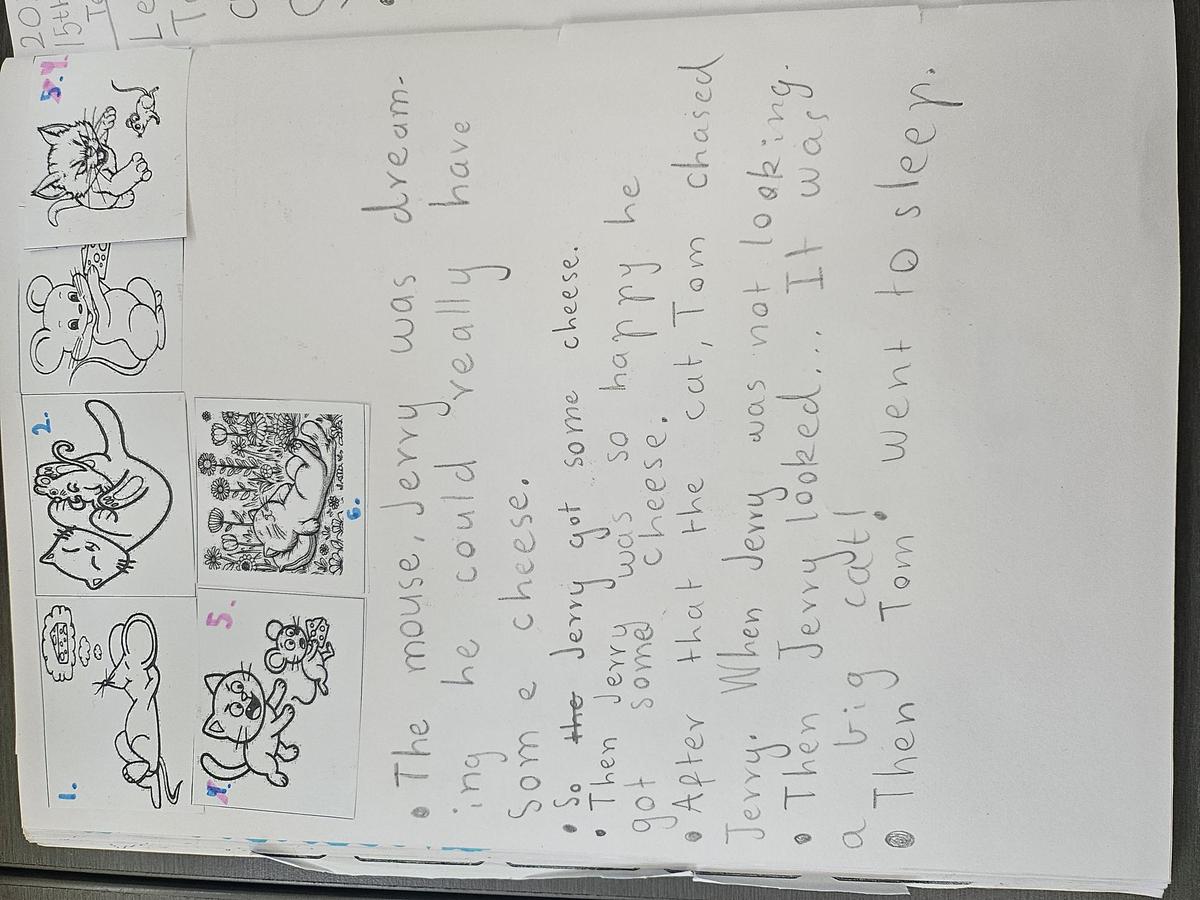 1.
2.
4.
5.
6.
• The mouse, Jerry was dream-
ing he could really have
some cheese.
• So the Jerry got some cheese.
• Then Jerry was so happy he
got some cheese.
• After that the cat, Tom chased
Jerry. When Jerry was not looking.
• Then Jerry looked.... It was
a big cat!
• Then Tom went to sleep.
20
15th